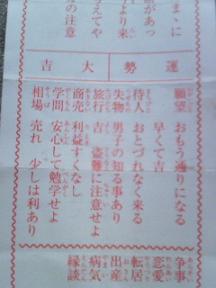 まゝに
があっ
より来
えてや
の注意
運勢
大吉
願望 おもう通りになる
早くて吉
待人 おとづれなく来る
失物 男子の知る事あり
旅行 吉 盗難に注意せよ
商売 利益すくなし
学問 安心して勉学せよ
相場 売れ 少しは利あり
争事
恋愛
転居
出産
病気
縁談